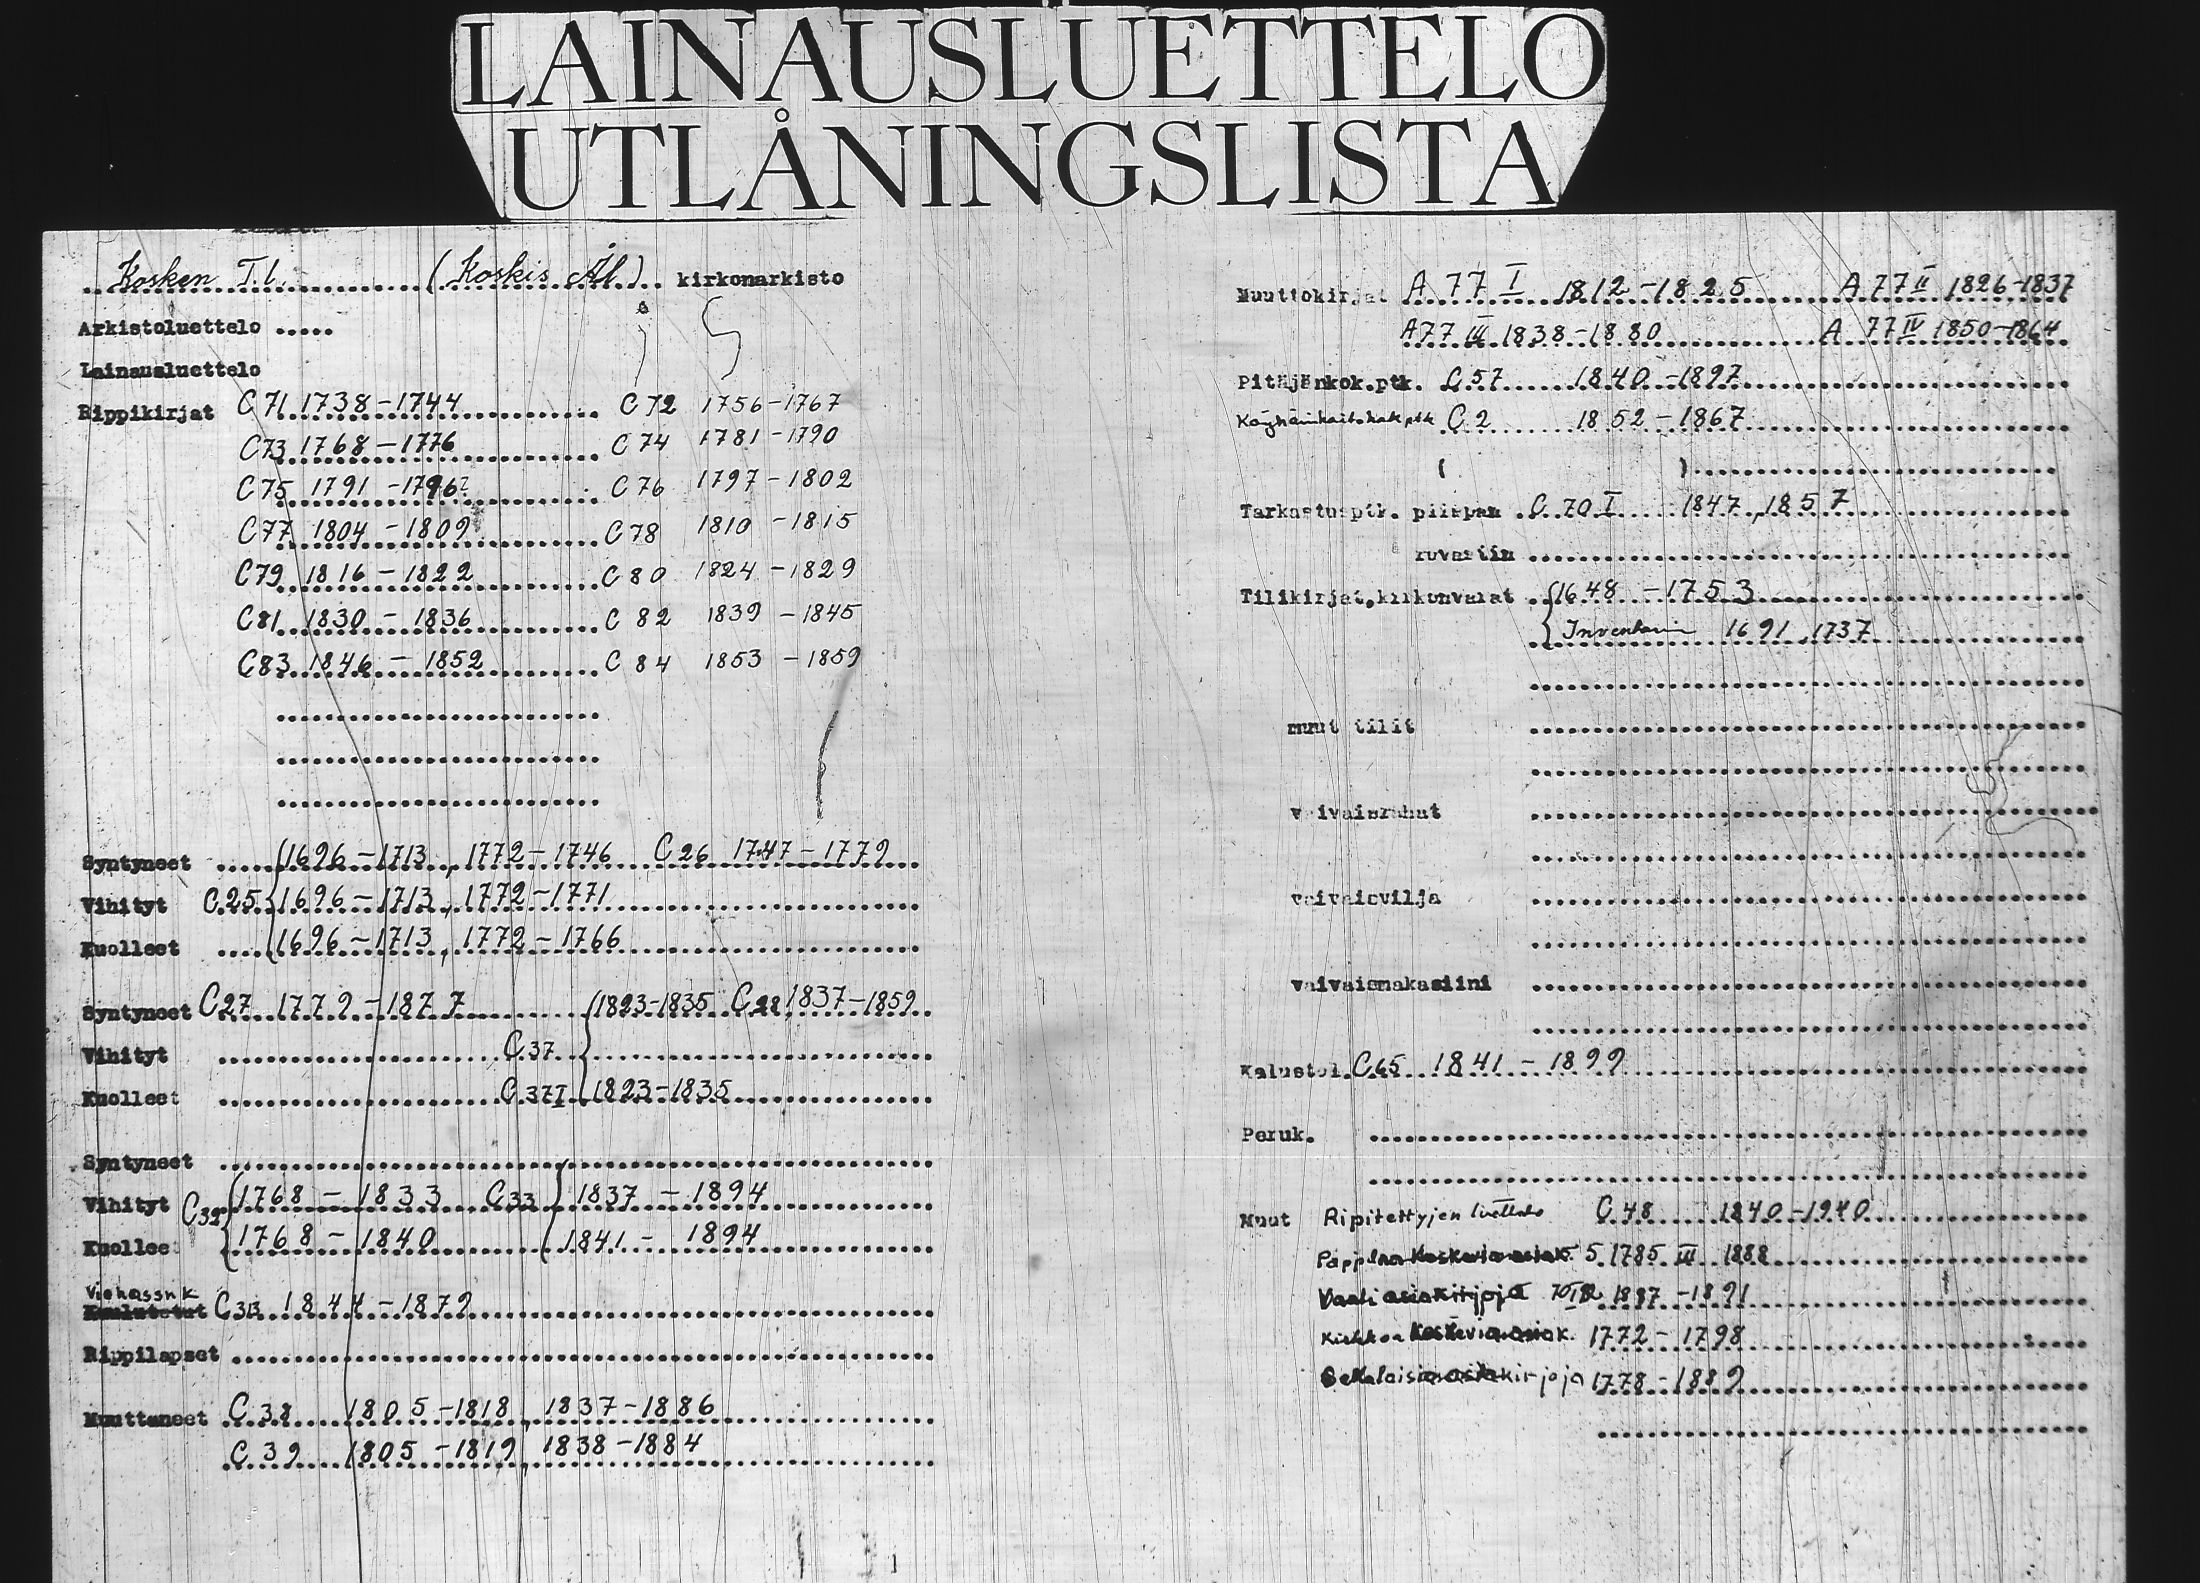 LAINAUSLUETTELO
UTLÅNINGSLISTA
Kosken T.l. (Koskis Ål) kirkonarkisto
Arkistoluettelo .....
Lainausluettelo
Rippikirjat C71 1738-1744 C72 1756-1767
C73 1768-1776 C74 1781-1790
C75 1791-1796? C76 1797-1802
C77 1804-1809 C78 1810-1815
C79 1816-1822 C80 1824-1829
C81 1830-1836 C82 1839-1845
C83 1846-1852 C84 1853-1859
Syntyneet 1696-1713, 1772-1746 C26 1747-1779
Vihityt C25 1696-1713, 1772-1771
Kuolleet 1696-1713, 1772-1766
Syntyneet C27 1779-1877 1823-1835 C28 1837-1859
Vihityt C37
Kuolleet C37I 1823-1835
Syntyneet
Vihityt C32 1768-1833 C33 1837-1894
Kuolleet 1768-1840 1841-1894
Kuulutetut C313 1844-1879
Rippilapset
Muuttaneet C38 1805-1818, 1837-1886
C39 1805-1819, 1838-1884
Muuttokirjat A77 I 1812-1825 A77 II 1826-1837
A77 III 1838-1880 A77 IV 1850-1864
Pitäjänkok.ptk. C57 1840-1897
C2 1852-1867
( )
Tarkastusptk. piispan C70 I 1847, 1857
rovastin
Tilikirjat, kirkonvarat 1648-1753
1691, 1737
muut tilit
vaivaisrahat
vaivaisvilja
vaivaismakasiini
Kalustol. C65 1841-1899
Peruk.
Muut Ripitettyjen luettelo C48 1840-1940
Pappilaa Koskevia asiak. 5 1785 III 1888
Vaali asiakirjoja 1887-1891
Kirkkoa Koskevia asiak. 1772-1798
Sekalaisia asiakirjoja 1778-1889